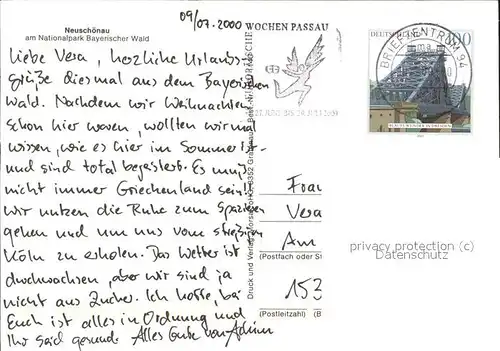 Neuschönau
am Nationalpark Bayerischer Wald
09/07.2000
Liebe Vera, herzliche Urlaubs-
grüße diesmal aus dem Bayerischen
Wald. Nachdem wir Weihnachten
schon hier waren, wollten wir mal
wissen, wie es hier im Sommer ist
und sind total begeistert. Es muß
nicht immer Griechenland sein!!
Wir nutzen die Ruhe zum Spazieren
gehen und um uns vom streßigen
Köln zu erholen. Das Wetter ist
durchwachsen, aber wir sind ja
nicht aus Zucker. Ich hoffe, bei
Euch ist alles in Ordnung und
Ihr seid gesund. Alles Gute von
WOCHEN PASSAU
BRIEFZENTRUM 94
100
Druck und Verlag
Frau
Vera
Am
(Postfach oder St
153
(Postleitzahl) (B
privacy protection (c)
Datenschutz